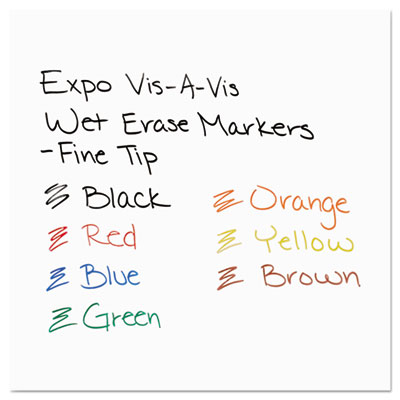 Expo Vis-A-Vis
Wet Erase Markers
-Fine Tip
Black
Red
Blue
Green
Orange
Yellow
Brown